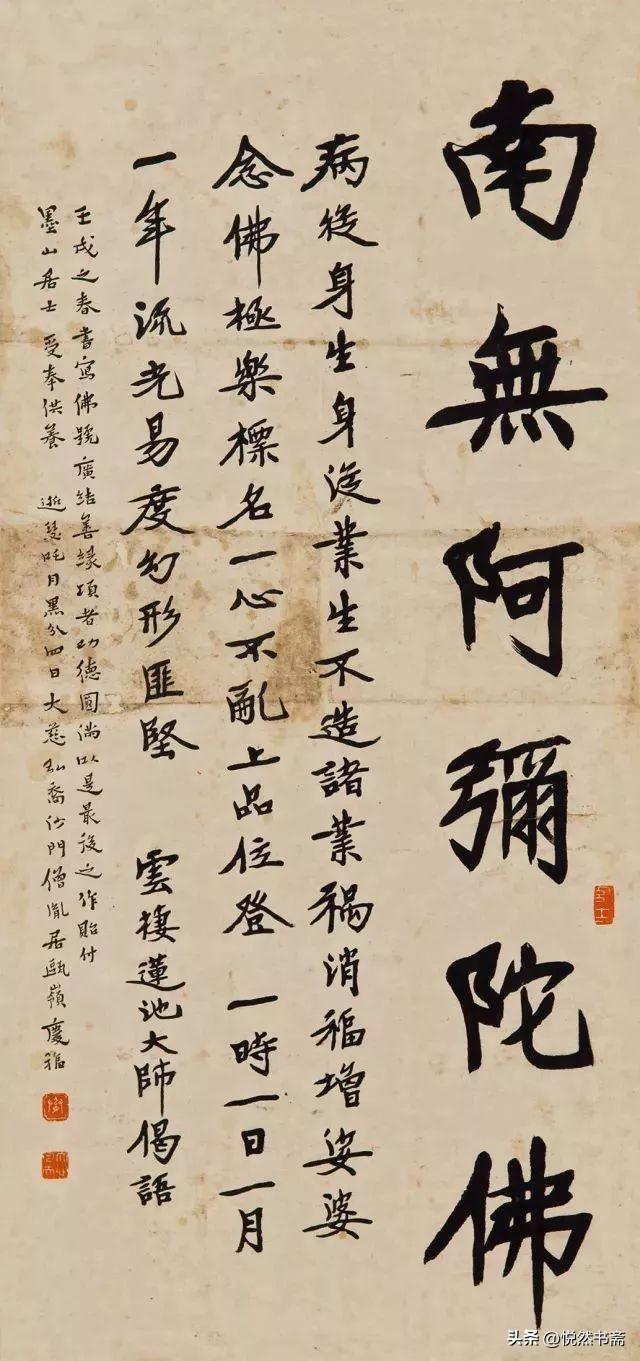 南無阿彌陀佛
病從身生身從業生不造諸業禍消福增娑婆
念佛極樂標名一心不亂上品位登 一時一日一月
一年流光易度幻形匪堅 雲棲蓮池大師偈語
壬戌之春書寫佛號廣結善緣項者功德圓滿以是最後之作貽付
墨山居士 受奉供養 逝瑟吒月黑分四日大慈弘裔沙門僧胤居甌嶺慶福
头条 @悦然书斋